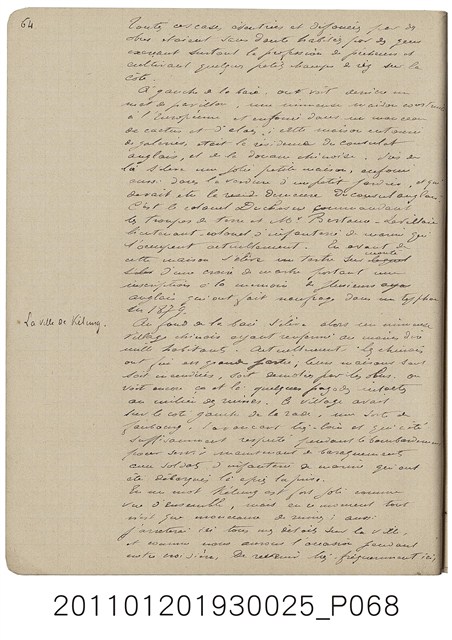 64
Toutes ces cases, éventrées et défoncées par des
obus étaient sans doute habitées par des gens
exerçant surtout la profession de pêcheurs et
cultivant quelques petits champs de riz sur la
côte.
A gauche de la baie, on voit derrière un
mât de pavillon, une immense maison construite
à l'Européenne et enfouie dans un morceau
de cactus et d'aloès; cette maison entourée
de galeries, était la résidence du consulat
anglais, et de la douane chinoise.
là s'élève une jolie petite maison, enfouie
aussi dans la verdure d'un petit jardin, et qui
devait être la demeure du consul anglais.
C'est le colonel Duchesne commandant
les troupes de terre et Mr Bertaux-Levillain
lieutenant-colonel d'infanterie de marine qui
l'occupent actuellement. En avant de
cette maison s'élève un tertre surmonté
d'une croix de marbre portant une
inscription à la mémoire de plusieurs
anglais qui ont fait naufrage dans un typhon
en
La ville de Kélung.
Au fond de la baie s'élève alors un immense
village chinois ayant renfermé au moins dix
mille habitants. Actuellement les chinois
ont fui en grande partie, leurs maisons sont
incendiées, sont démolies par les obus, on
voit encore ça et là quelques pagodes intactes
au milieu des ruines. Ce village avait
sur le côté gauche de la rade, une sorte de
faubourg s'avançant très-loin et qui a été
suffisamment respecté pendant le bombardement
pour servir maintenant de baraquements
aux soldats d'infanterie de marine qui ont
été débarqués là après la prise.
En un mot Kélung est fort joli comme
vue d'ensemble, mais en ce moment tout
n'est que monceaux de ruines; aussi
j'arrêterai ici tous mes détails sur la ville,
et comme nous aurons l'occasion pendant
notre croisière, de revenir très fréquemment ici,
201101201930025_P068